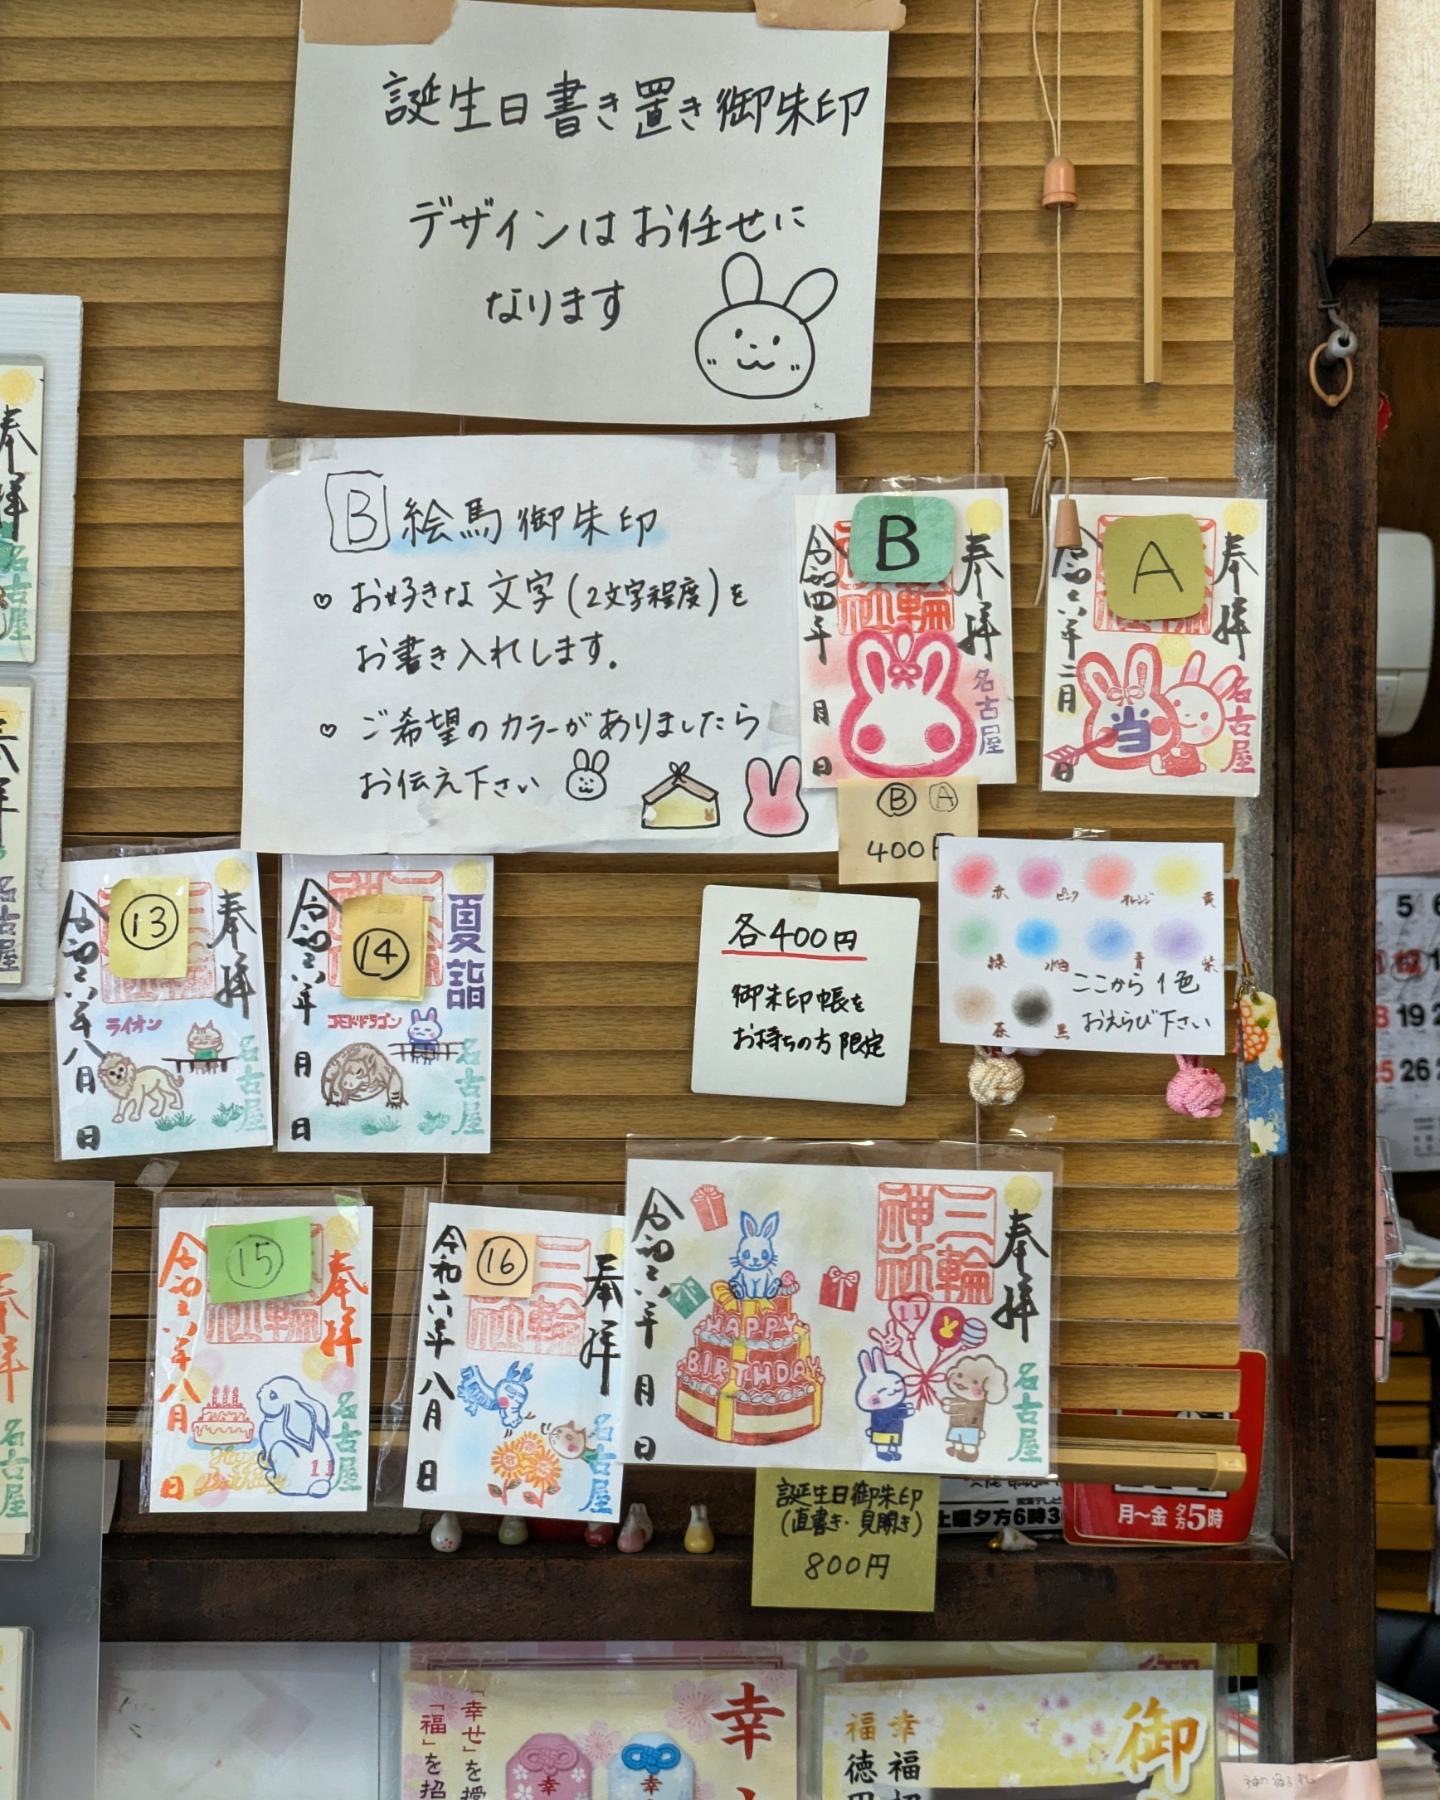 誕生日書き置き御朱印
デザインはお任せに
なります
B 絵馬御朱印
お好きな文字(2文字程度)を
お書き入れします。
ご希望のカラーがありましたら
お伝え下さい
B
奉拝
令和四年
月
日
名古屋
A
奉拝
令和六年二月
日
当
名古屋
Ⓑ Ⓐ
400円
赤 ピンク オレンジ 黄
緑 水色 青 紫
茶 黒
ここから1色
おえらび下さい
各400円
御朱印帳を
お持ちの方限定
⑬
奉拝
令和六年八月
日
ライオン
名古屋
⑭
夏詣
令和六年
月
日
コモドドラゴン
名古屋
⑮
奉拝
令和六年八月
日
名古屋
11
⑯
奉拝
令和六年八月
日
名古屋
奉拝
三輪
神社
令和六年
月
日
HAPPY
BIRTHDAY
11
名古屋
誕生日御朱印
(直書き・見開き)
800円
土曜夕方6時3
月〜金 夕方5時
奉拝
名古屋
5 6
12
18 19 2
25 26 2
幸
「幸せ」を授
「福」を招
幸
幸
御
幸福
福徳